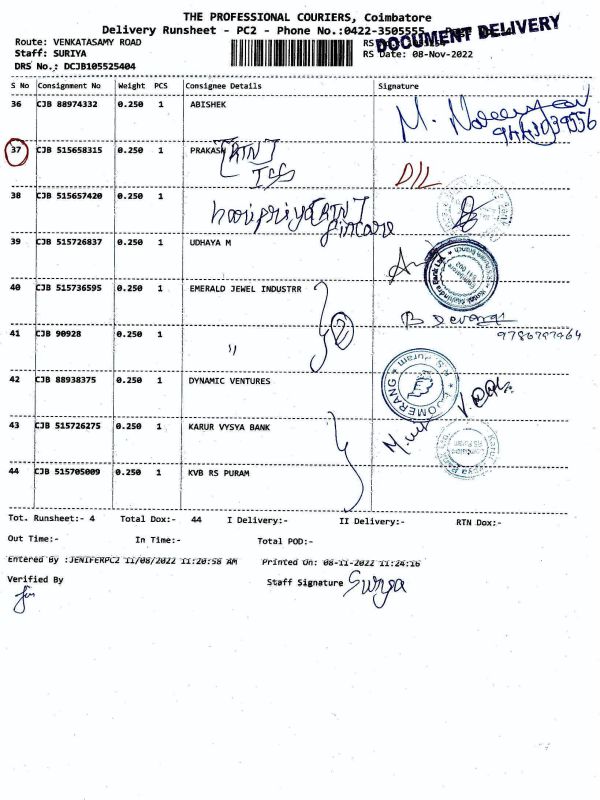 THE PROFESSIONAL COURIERS, Coimbatore
Delivery Runsheet - PC2 - Phone No.:0422-3505555
DOCUMENT DELIVERY
Route: VENKATASAMY ROAD
Staff: SURIYA RS Date: 08-Nov-2022
DRS No.: DCJB105525404
S No Consignment No Weight PCS Consignee Details Signature
36 CJB 88974332 0.250 1 ABISHEK
37 CJB 515658315 0.250 1 PRAKASH RTN
D/L
38 CJB 515657420 0.250 1 haripriya RTN
fincare
39 CJB 515726837 0.250 1 UDHAYA M
40 CJB 515736595 0.250 1 EMERALD JEWEL INDUSTRR
2
41 CJB 90928 0.250 1 "
42 CJB 88938375 0.250 1 DYNAMIC VENTURES
BOOMERANG
43 CJB 515726275 0.250 1 KARUR VYSYA BANK
44 CJB 515705009 0.250 1 KVB RS PURAM
Tot. Runsheet:- 4 Total Dox:- 44 I Delivery:- II Delivery:- RTN Dox:-
Out Time:- In Time:- Total POD:-
Entered By :JENIFERPC2 11/08/2022 11:20:58 AM Printed On: 08-11-2022 11:24:16
Verified By Staff Signature Surya